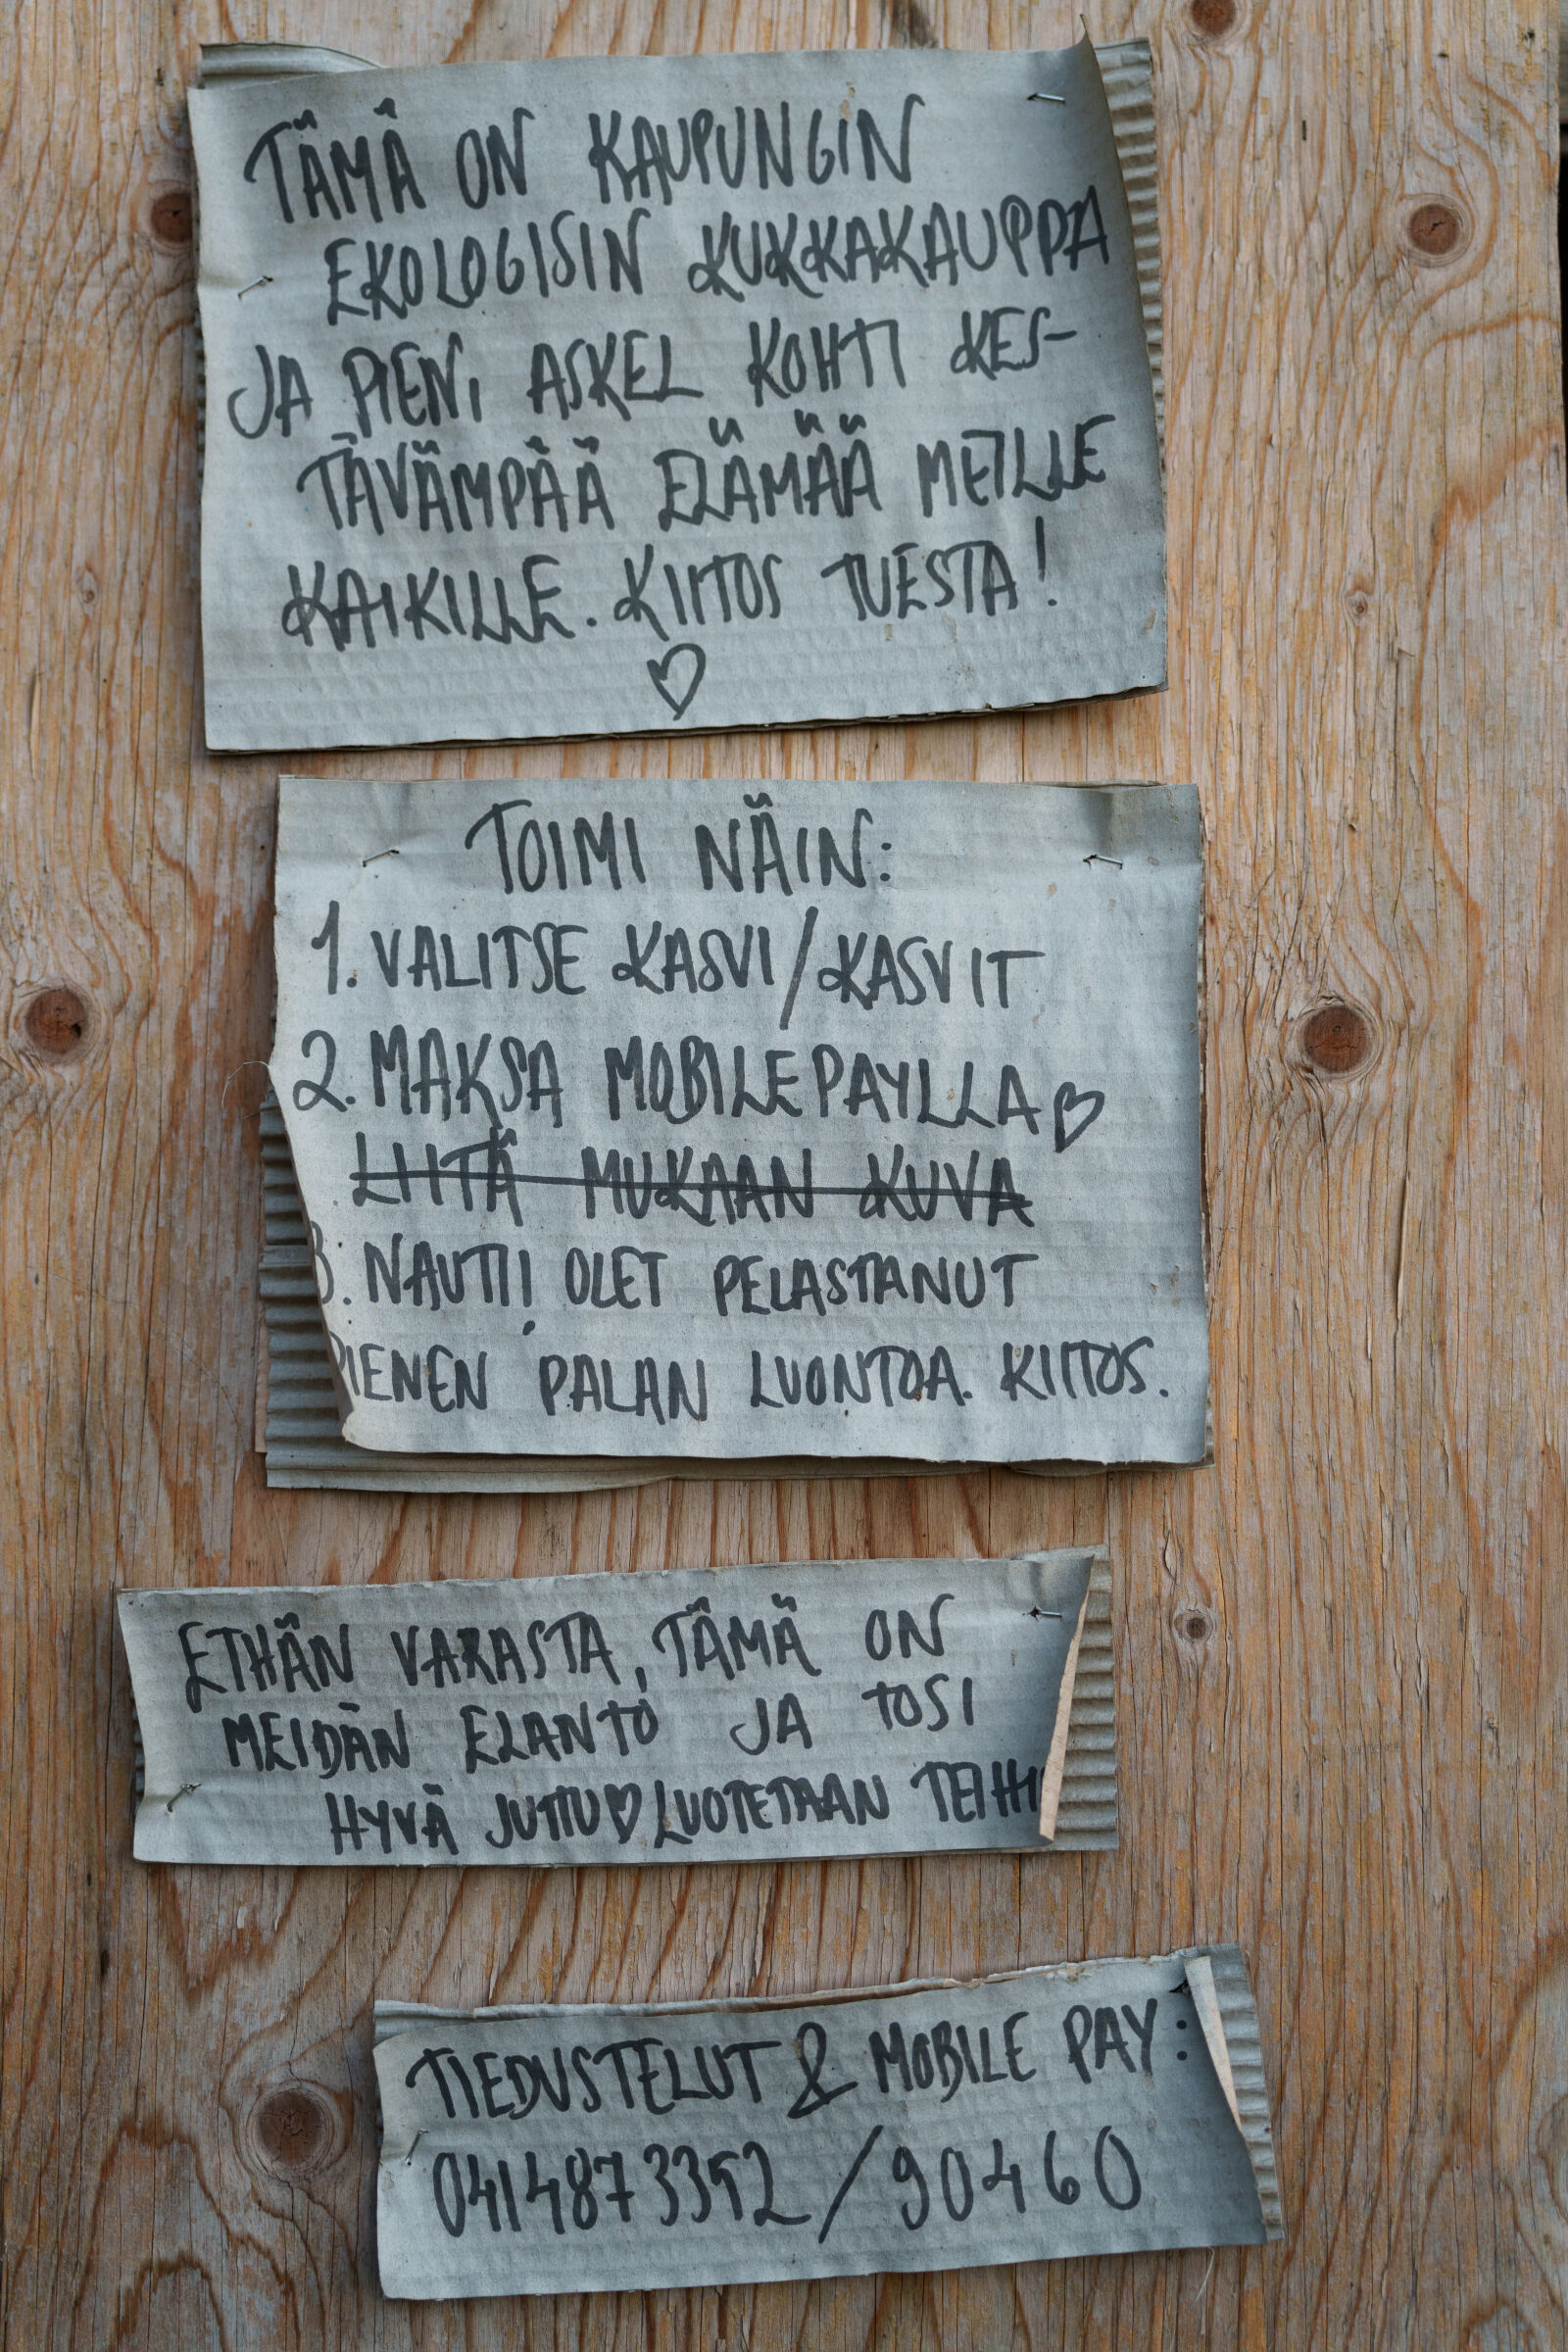 TÄMÄ ON KAUPUNGIN
EKOLOGISIN KUKKAKAUPPA
JA PIENI ASKEL KOHTI KES-
TÄVÄMPÄÄ ELÄMÄÄ MEILLE
KAIKILLE. KIITOS TUESTA!
♡
TOIMI NÄIN:
1. VALITSE KASVI/KASVIT
2. MAKSA MOBILEPAYLLA ♡
LIITÄ MUKAAN KUVA
3. NAUTI! OLET PELASTANUT
PIENEN PALAN LUONTOA. KIITOS.
ETHÄN VARASTA, TÄMÄ ON
MEIDÄN ELANTO JA TOSI
HYVÄ JUTTU ♡ LUOTETAAN TEIHI
TIEDUSTELUT & MOBILE PAY:
0414873352 / 90460